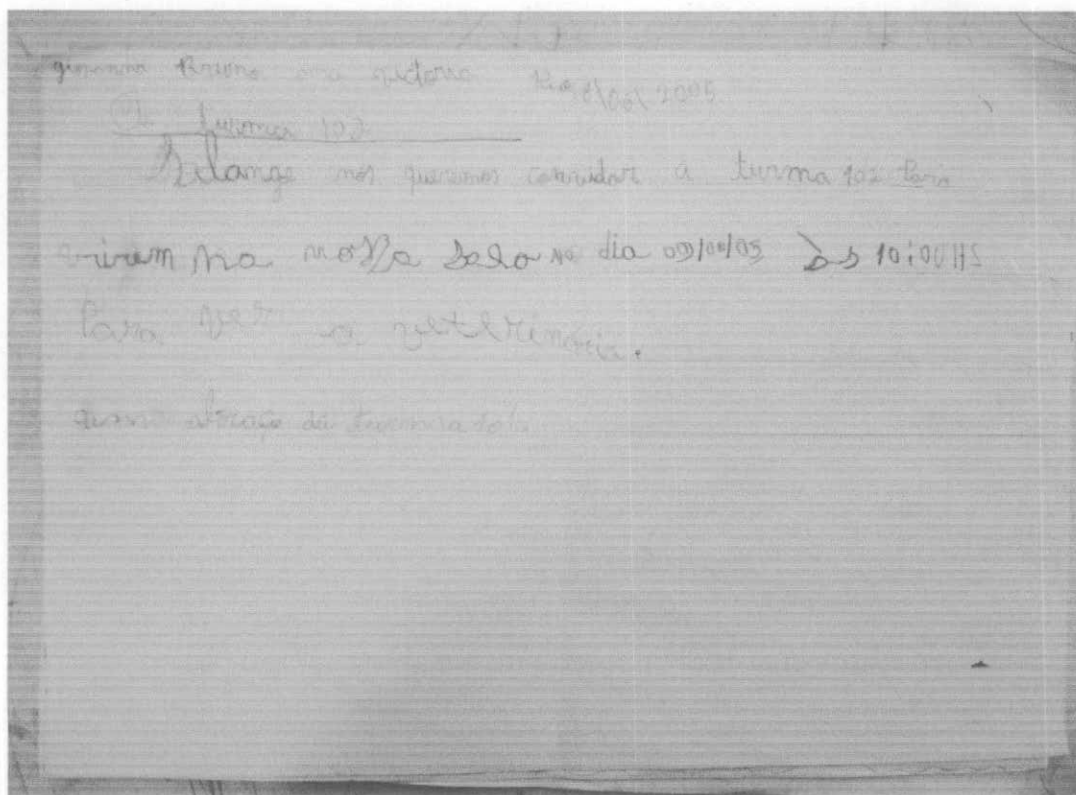 giovanna Bruno ana victoria Rio, 8/06/2005
A turma 102
Solange nós queremos convidar a turma 102 Para
virem na nossa sala no dia 09/06/05 às 10:00HS
Para ver a veterinária.
uma abraço da turma